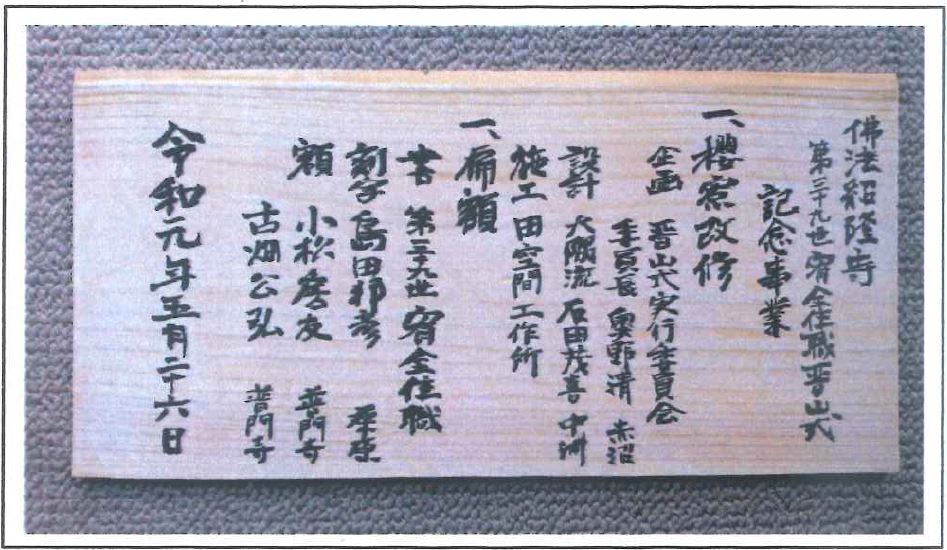 佛法紹隆寺
第三十九世宥全住職晋山式
記念事業
一、櫻寮改修
企画 晋山式実行委員会
委員長 奥野清 赤沼
設計 大隅流 石田茂喜 中洲
施工 田空間工作所
一、扁額
書 第三十九世 宥全住職
刻字 島田邦彦
額 小松 友 普門寺
古畑公弘 普門寺
令和元年五月二十六日